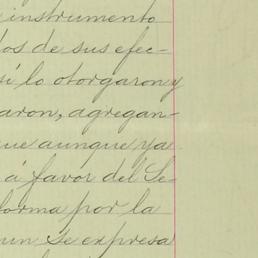 instrumento
os de sus efec-
sí lo otorgaron y
aron, agregan-
ue aunque ya
á favor del Se-
forma por la
un se expresa